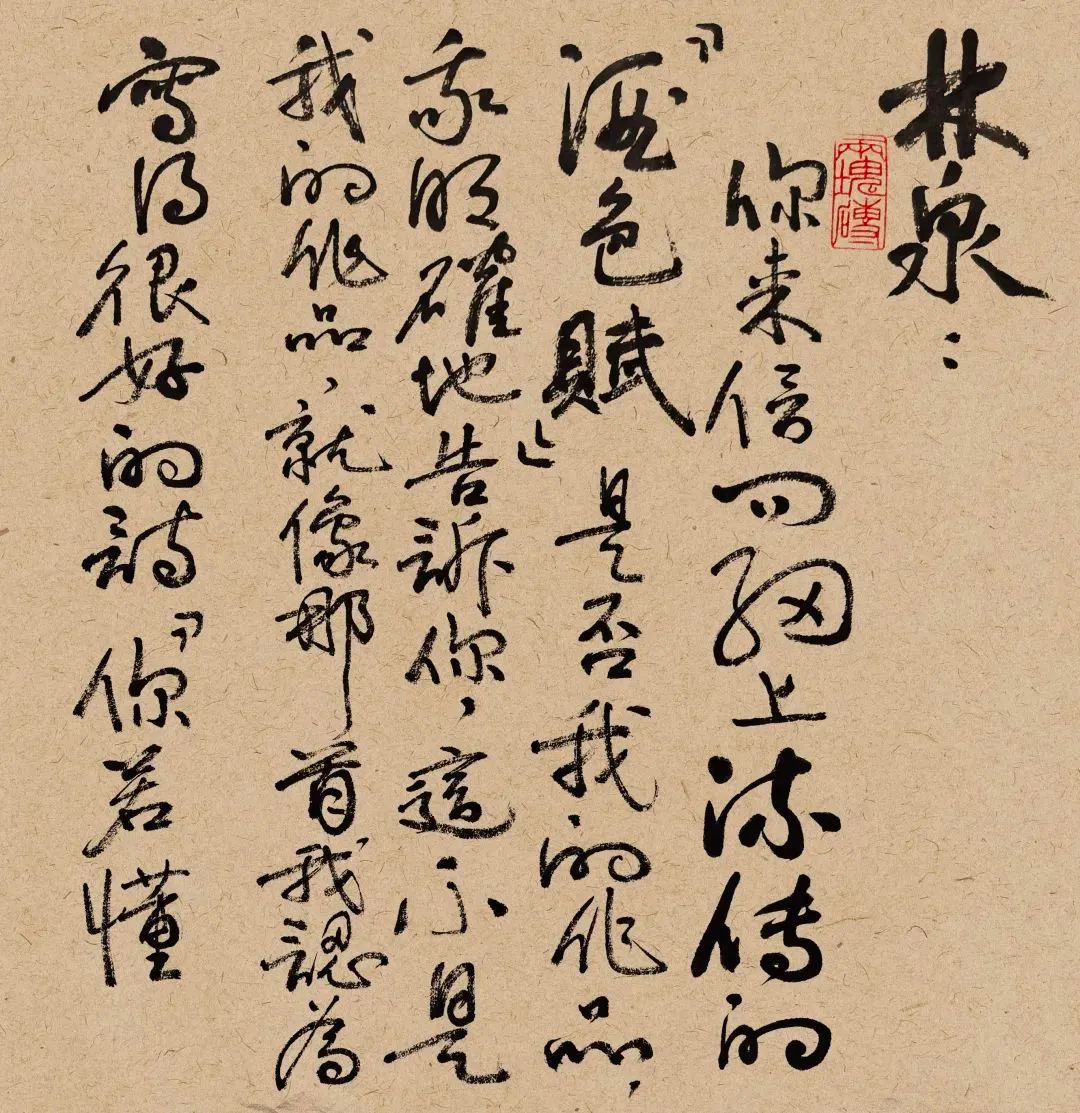 林泉：
你來信問網上流傳的
『酒色賦』是否我的作品，
我明確地告訴你，這不是
我的作品，就像那首我認為
寫得很好的詩『你若懂